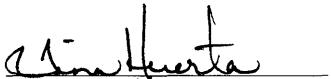 Tina Huerta